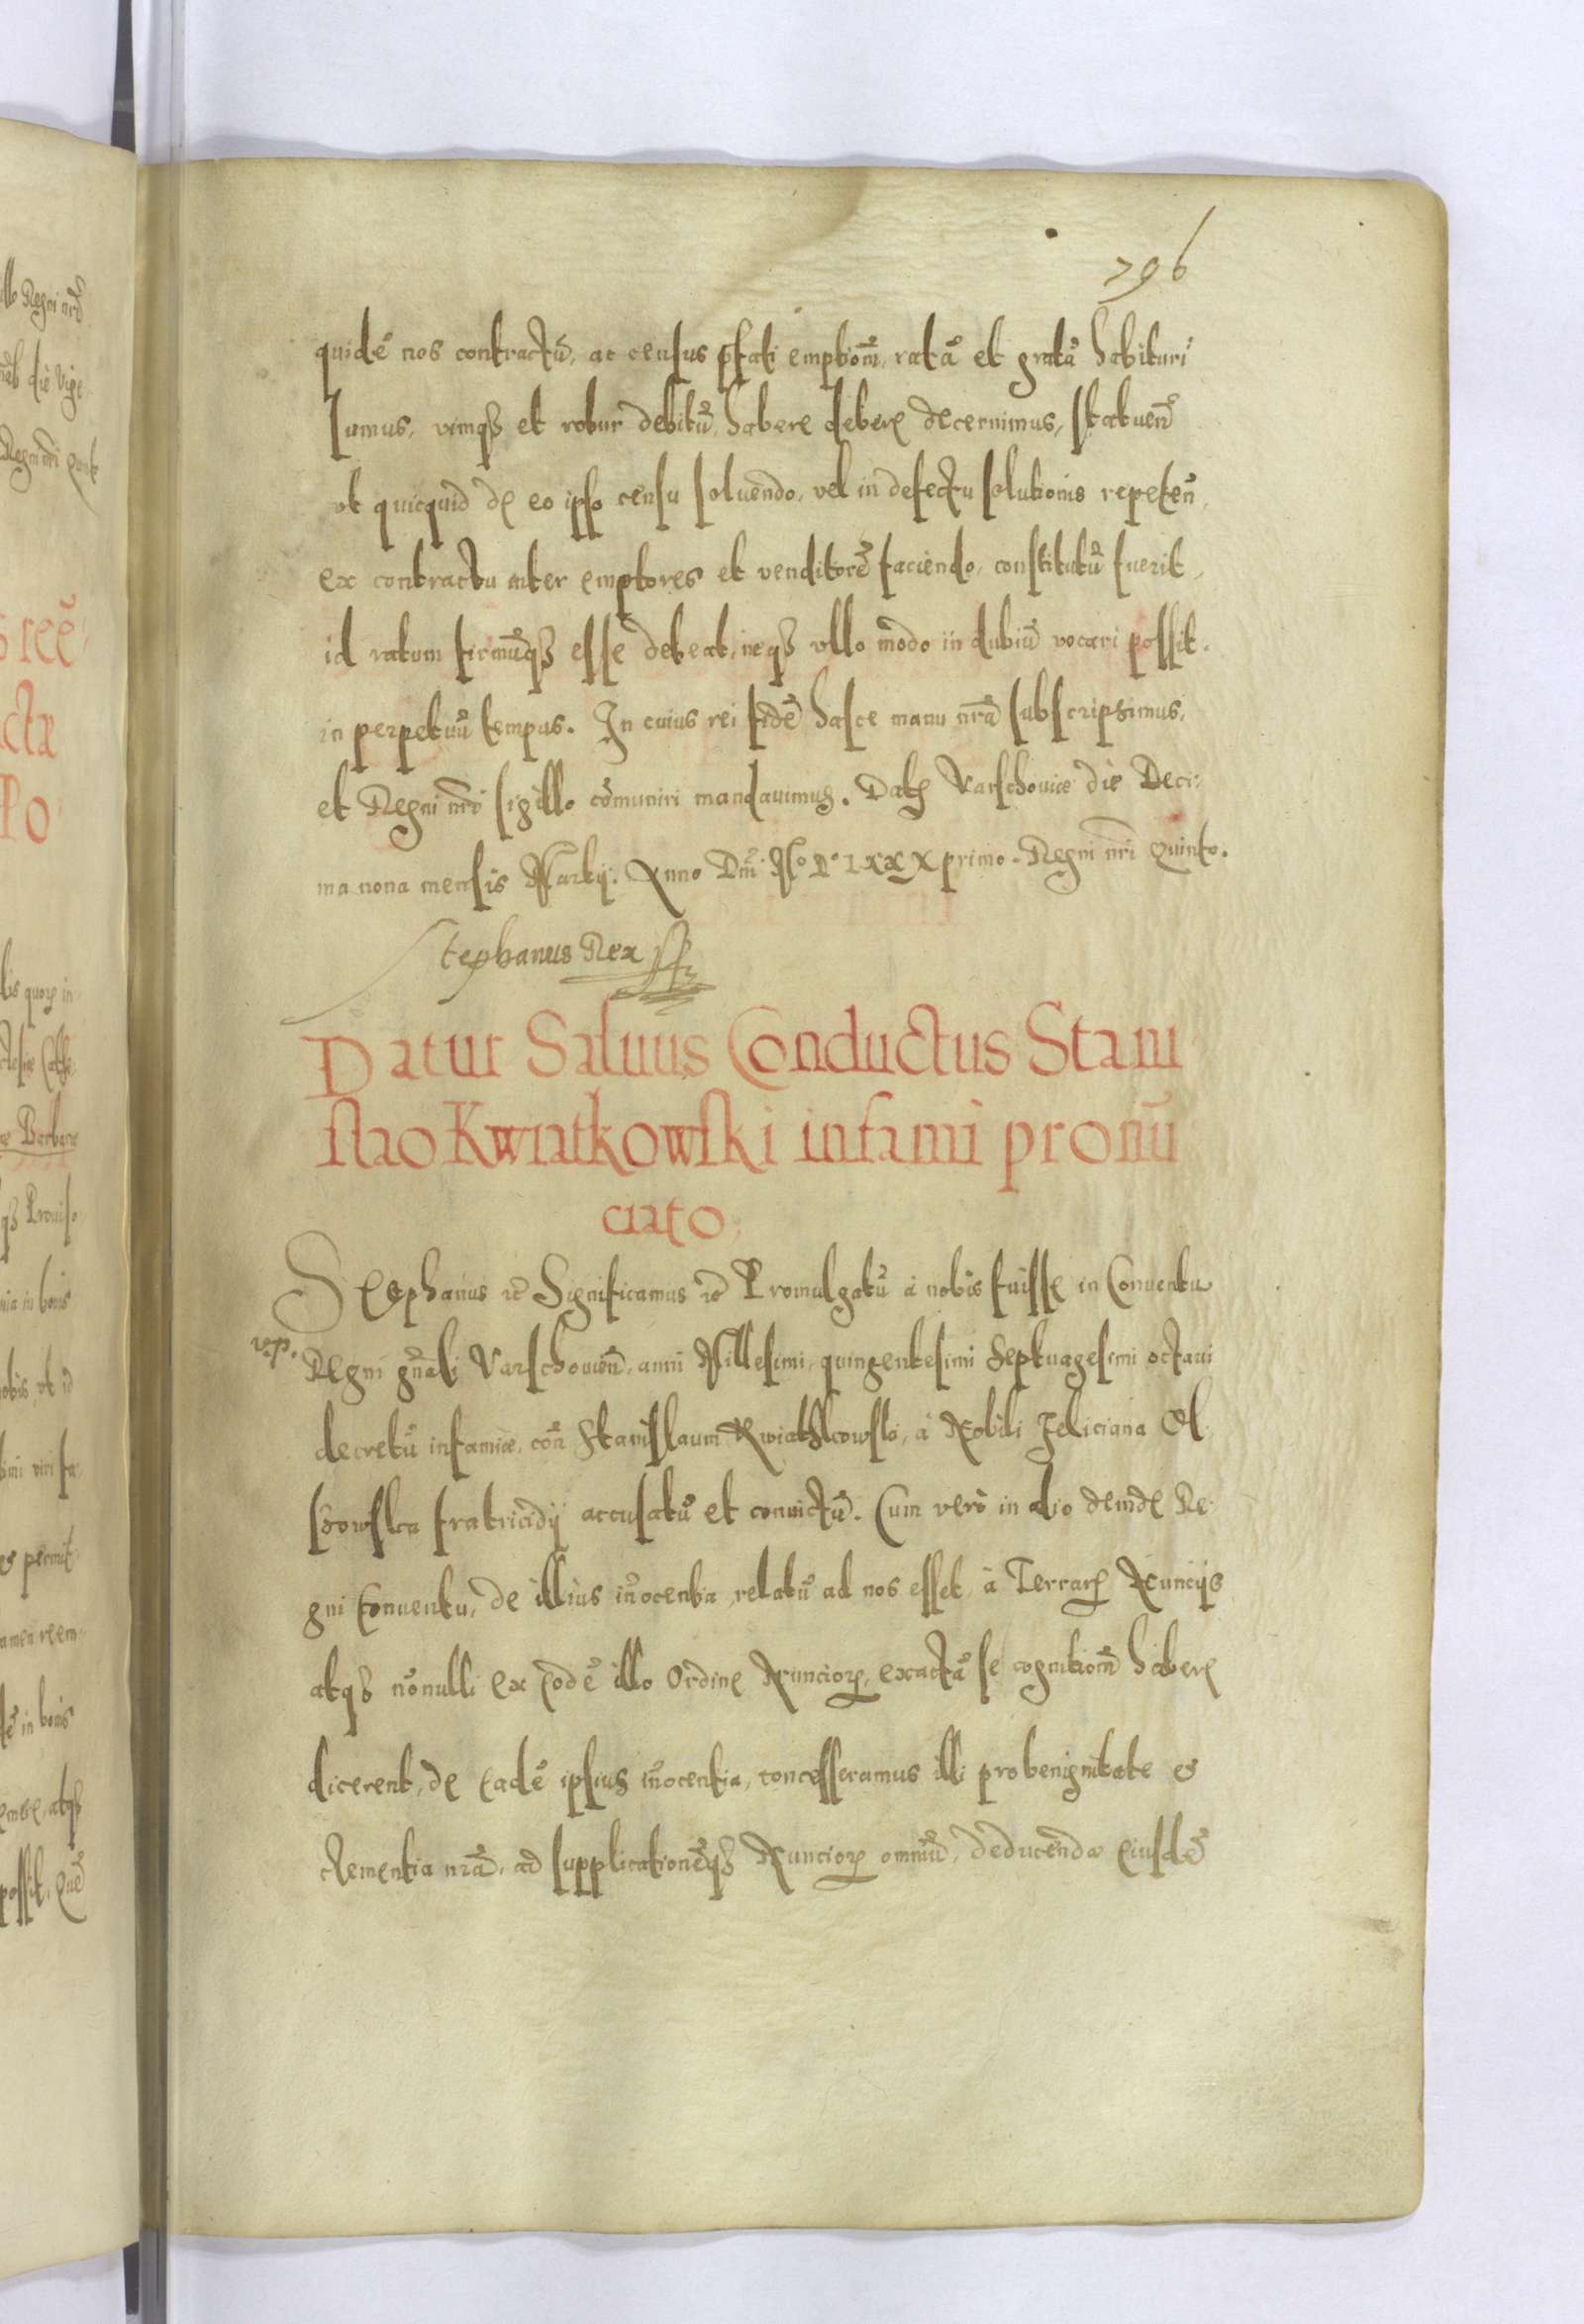 296
quidẽ nos contractũ, ac census p̃fati emption̄, ratã et gratã habituri
sumus, vimqꝫ et robur debitũ habere debere decernimus, statuen̄
ut quicquid de eo ipso censu soluendo, vel in defectu solutionis repeten̄,
ex contractu inter emptores et venditorẽ faciendo, constitutũ fuerit,
id ratum firmũqꝫ esse debeat, neqꝫ vllo modo in dubiũ vocari possit.
in perpetuũ tempus. In cuius rei fidẽ hasce manu nr̃a subscripsimus,
et Regni nr̃i sigillo cõmuniri mandauimus. Datꝭ Varschouiæ die Deci-
ma nona mensis Martij. Anno Dn̄i Mº Dº LXXX primo. Regni nr̃i Quinto.
Stephanus Rex
Datur Saluus Conductus Stani
slao Kwiatkowski infami pronũ
ciato,
Stephanus ꝛc̃ Significamus ꝛc̃ Promulgatũ a nobis fuisse in Conuentu
v.p.
Regni gñali Varschouien̄, anni Millesimi, quingentesimi Septuagesimi octaui
decretũ infamiæ, con̄ Stanislaum Kwiathkowski, à Nobili Feliciana Ol
szowska fratricidij accusatũ et conuictũ. Cum verò in alio deinde Re-
gni Conuentu, de illius iñocentia relatũ ad nos esset à Terrarꝝ Nuncijs
atqꝫ nõnulli ex eodẽ illo Ordine Nunciorꝝ, exactã se cognition̄ habere
dicerent, de eadẽ ipsius iñocentia, concesseramus illi pro benignitate et
clementia nr̃a, ad supplicationẽqꝫ Nunciorꝝ omniũ, deducendæ eiusdẽ